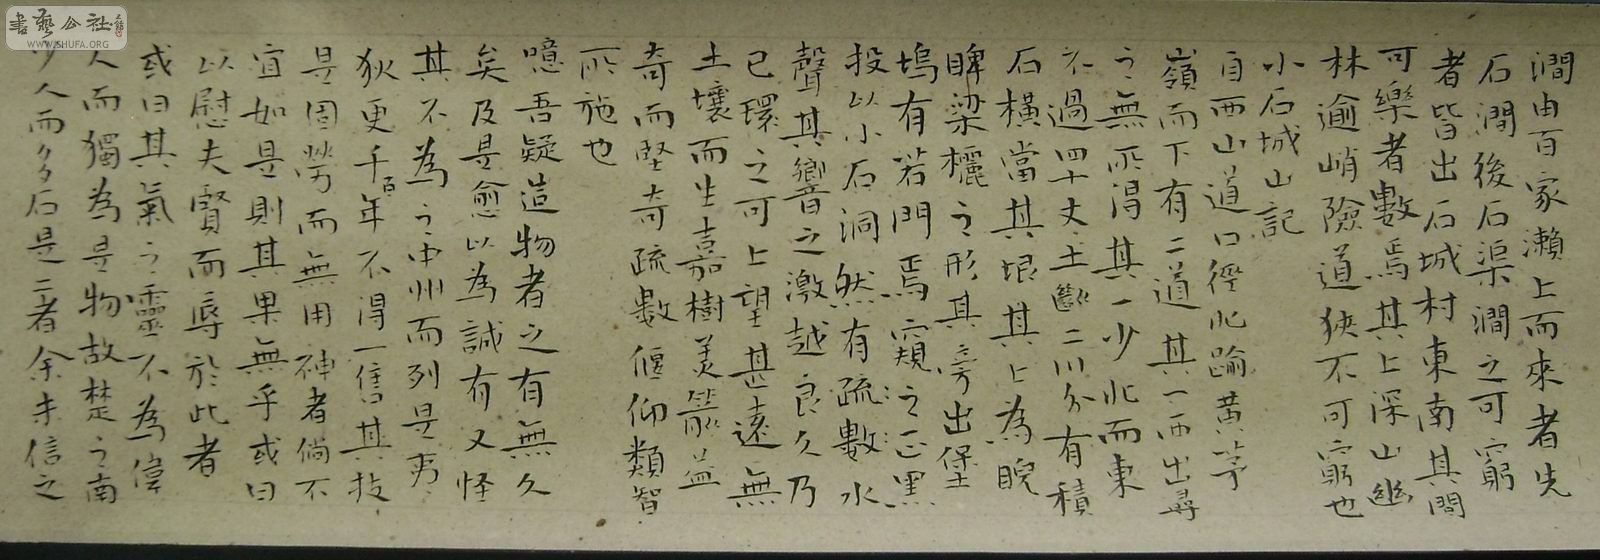 書藝公社
WWW.SHUFA.ORG
澗由百家瀨上而來者先
石澗後石渠澗之可窮
者皆出石城村東南其間
可樂者數焉其上深山幽
林逾峭險道狹不可窮也
小石城山記
自西山道口徑北踰黃茅
嶺而下有二道其一西出尋
之無所得其一少北而東
不過四十丈土斷二川分有積
石橫當其垠其上為睨
睥梁欐之形其旁出堡
塢有若門焉窺之正黑
投以小石洞然有疏數水
聲其響之激越良久乃
已環之可上望甚遠無
土壤而生嘉樹美箭益
奇而堅奇疏數偃仰類智
所施也
噫吾疑造物者之有無久
矣及是愈以為誠有又怪
其不為之中州而列是夷
狄更千百年不得一售其技
是固勞而無用神者倘不
宜如是則其果無乎或曰
以慰夫賢而辱於此者
或曰其氣之靈不為偉
人而獨為是物故楚之南
少人而多石是二者余未信之